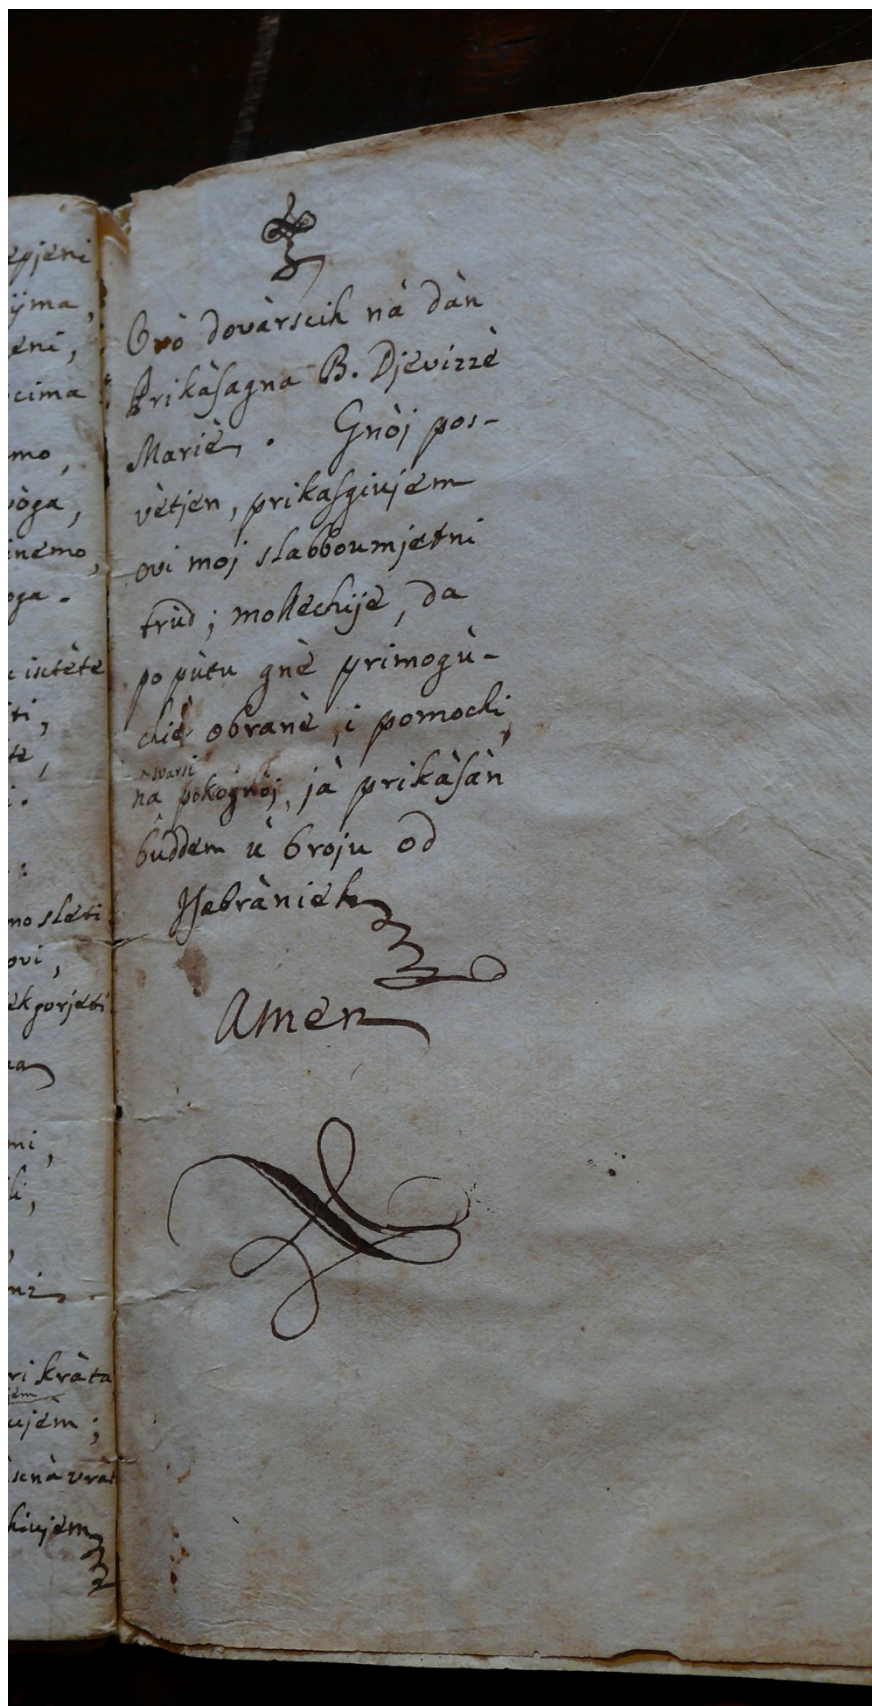 epjeni
ijma,
eni,
cima
mo,
vòga,
inemo,
oga.
isctète
iti,
te,
i.
:
mo sleti
ovi,
ek gorjeti
na
mi,
li,
,
ni
ri kràta
jem
ujèm;
scnà vrat
hiujem
Ovò dovàrscih nà dàn
Prikàſagna B. Djevizzè
Mariè. Gnòj pos-
vètjen, prikaſgiujem
ovi moj slabboumjetni
trùd; mollechije, da
po pùtu gnè primogù-
chiè obranè, i pomochi,
svarsi
na pokognòj, jà prikàſàn
bùddem ù broju od
Iſabrànieh
Amen